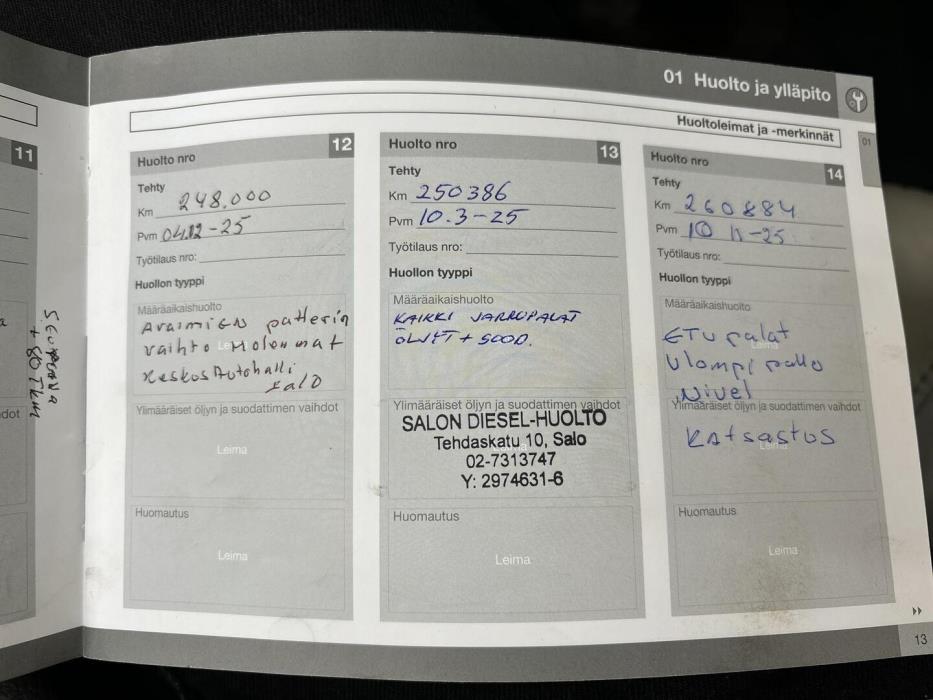 01 Huolto ja ylläpito
Huoltoleimat ja -merkinnät
01
11
+ 60 Tkm
Huolto nro 12
Tehty
Km 248.000
Pvm 04.12-25
Työtilaus nro:
Huollon tyyppi
Määräaikaishuolto
Avaimien patterin
vaihto Molemmat
KeskosAutohalli
Salo
Ylimääräiset öljyn ja suodattimen vaihdot
Leima
Huomautus
Leima
Huolto nro 13
Tehty
Km 250386
Pvm 10.3-25
Työtilaus nro:
Huollon tyyppi
Määräaikaishuolto
KAIKKI JARRUPALAT
ÖLJYT + SUOD.
Ylimääräiset öljyn ja suodattimen vaihdot
SALON DIESEL-HUOLTO
Tehdaskatu 10, Salo
02-7313747
Y: 2974631-6
Huomautus
Leima
Huolto nro 14
Tehty
Km 260884
Pvm 10 11-25
Työtilaus nro:
Huollon tyyppi
Määräaikaishuolto
ETU palat
Ulompi pallo
Nivel
Ylimääräiset öljyn ja suodattimen vaihdot
Katsastus
Huomautus
Leima
13